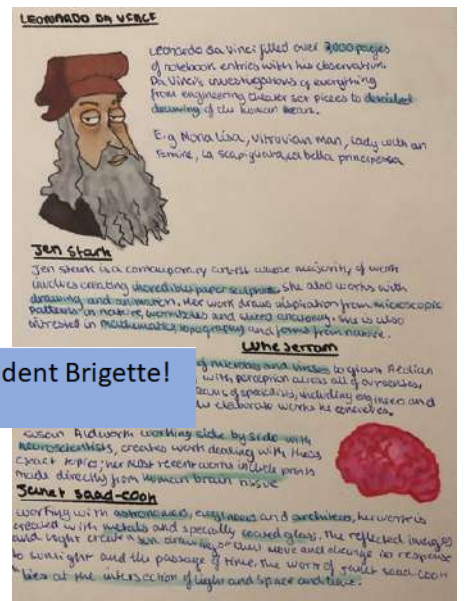 LEONARDO DA VINCI
Leonardo da Vinci filled over 7,000 pages
of notebook entries with his observation.
Da Vinci's investigations of everything
from engineering theater set pieces to detailed
drawing of the human
E.g Mona Lisa, Vitruvian Man, Lady with an
la bella principessa
Jen Stark
Jen Stark is a contemporary artist whose majority of work
involves creating incredible paper sculpture. She also works with
drawing and animation. Her work draws inspiration from microscopic
patterns in nature, wormholes and sliced anatomy. She is also
intrested in mathematics, topography and forms from nature.
dent Brigette!
of microbes and viruses to giant Aeolian
with perception across all of our senses
teams of specialists, including engineers and
elaborate works he conceives.
Susan Aldworth working side by side with
neuroscientists, creates work dealing with these
exact topics; her most recent works include prints
made directly from human brain tissue
Janet saad-cook
working with astronomers, engineers and architects, her work is
created with metals and specially coated glass. The reflected images
and light create a sun drawing, that move and change in response
to sunlight and the passage of time. The work of janet saad-cook
"lies at the intersection of light and space and time."